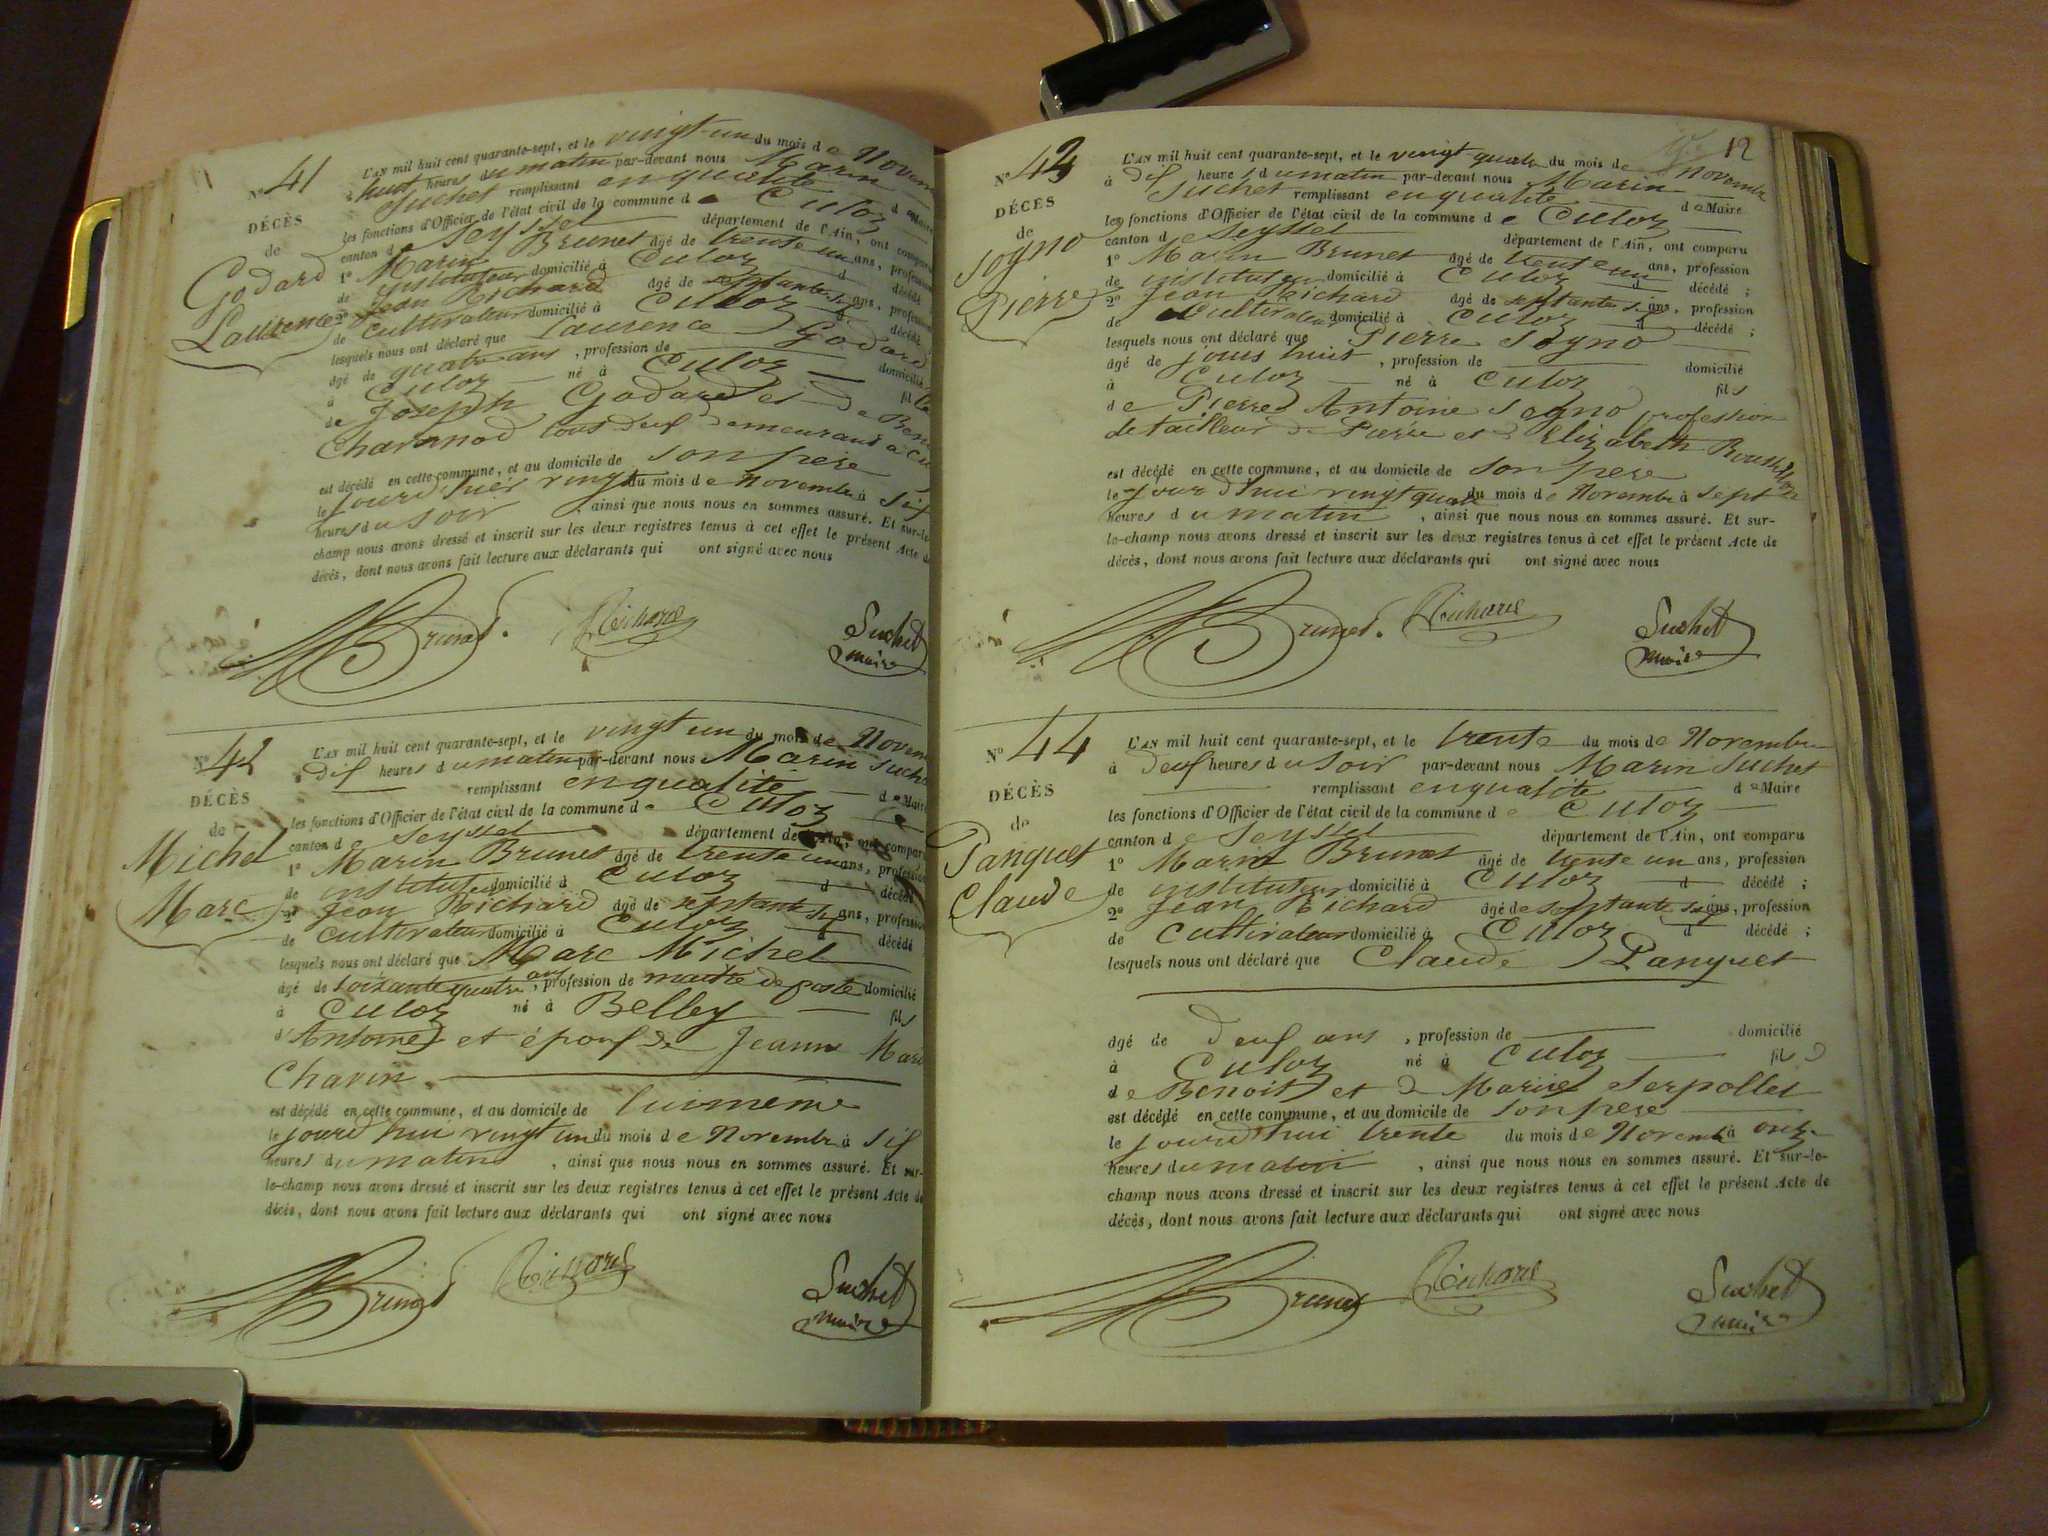 N° 41
DÉCÈS
de
Godard
Laurence
L'AN mil huit cent quarante-sept, et le vingt un du mois de Novem
à huit heures du matin par-devant nous Marin
Suchet remplissant en qualité d e Maire
les fonctions d'Officier de l'état civil de la commune d e Culoz
canton d e Seyssel département de l'Ain, ont comparu
1° Marin Brunet âgé de trente un ans, profession
de instituteur domicilié à Culoz d décédé
2° Jean Richard âgé de septante six ans, profession
de cultivateur domicilié à Culoz d décédé
lesquels nous ont déclaré que Laurence Godard
âgé de quatre ans, profession de domicilié
à Culoz né à Culoz fil le
de Joseph Godard et de Beno
Charmod tous deux demeurant a Cu
est décédé en cette commune, et au domicile de son pere
le jourd'hier vingt du mois de Novembre à six
heures du soir ainsi que nous nous en sommes assuré. Et sur-le-
champ nous avons dressé et inscrit sur les deux registres tenus à cet effet le présent Acte de
décès, dont nous avons fait lecture aux déclarants qui ont signé avec nous
Brunet. Richard Suchet
maire
N° 42
DÉCÈS
de
Michel
Marc
L'AN mil huit cent quarante-sept, et le vingt un du mois de Novem
dix heures du matin par-devant nous Marin Suchet
remplissant en qualité d e Maire
les fonctions d'Officier de l'état civil de la commune d e Culoz
canton d e Seyssel département de l'Ain, ont comparu
1° Marin Brunet âgé de trente un ans, profession
de instituteur domicilié à Culoz d décédé
2° Jean Richard âgé de septante six ans, profession
de cultivateur domicilié à Culoz d décédé
lesquels nous ont déclaré que Marc Michel
âgé de soixante quatre ans, profession de maitre de poste domicilié
à Culoz né à Belley fils
d'Antoine et époux de Jeanne Mari
Chavin.
est décédé en cette commune, et au domicile de lui meme
le jourd'hui vingt un du mois de Novembre à six
heures du matin, ainsi que nous nous en sommes assuré. Et sur-
le-champ nous avons dressé et inscrit sur les deux registres tenus à cet effet le présent Acte de
décès, dont nous avons fait lecture aux déclarants qui ont signé avec nous
Brunet Richard Suchet
maire
12
N° 43
DÉCÈS
de
Sogno
Pierre
L'AN mil huit cent quarante-sept, et le vingt quatre du mois de Novembre
à dix heure du matin par-devant nous Marin
Suchet remplissant en qualité d e Maire
les fonctions d'Officier de l'état civil de la commune d e Culoz
canton d e Seyssel département de l'Ain, ont comparu
1° Marin Brunet âgé de trente un ans, profession
de instituteur domicilié à Culoz d décédé ;
2° Jean Richard âgé de septante six ans, profession
de Cultivateur domicilié à Culoz d décédé ;
lesquels nous ont déclaré que Pierre Sogno
âgé de jours huit, profession de domicilié
à Culoz né à Culoz fils
de Pierre Antoine Sogno profession
de tailleur de Pierre et d'Elizabeth Roussillon
est décédé en cette commune, et au domicile de son pere
le jour d'hui vingt quatre du mois de Novembre à sept
heures du matin, ainsi que nous nous en sommes assuré. Et sur-
le-champ nous avons dressé et inscrit sur les deux registres tenus à cet effet le présent Acte de
décès, dont nous avons fait lecture aux déclarants qui ont signé avec nous
Brunet. Richard Suchet
maire
N° 44
DÉCÈS
de
Panquet
Claude
L'AN mil huit cent quarante-sept, et le trente du mois de Novembre
à deux heures du soir par-devant nous Marin Suchet
remplissant en qualité d e Maire
les fonctions d'Officier de l'état civil de la commune d e Culoz
canton d e Seyssel département de l'Ain, ont comparu
1° Marin Brunet âgé de trente un ans, profession
de instituteur domicilié à Culoz d décédé ;
2° Jean Richard âgé de septante six ans, profession
de Cultivateur domicilié à Culoz d décédé ;
lesquels nous ont déclaré que Claude Panquet
âgé de deux ans, profession de domicilié
à Culoz né à Culoz fils
de Benoit et de Marie Serpollet
est décédé en cette commune, et au domicile de son pere
le jourd'hui trente du mois de Novembre à onze
heures du matin, ainsi que nous nous en sommes assuré. Et sur-le-
champ nous avons dressé et inscrit sur les deux registres tenus à cet effet le présent Acte de
décès, dont nous avons fait lecture aux déclarants qui ont signé avec nous
Brunet Richard Suchet
maire